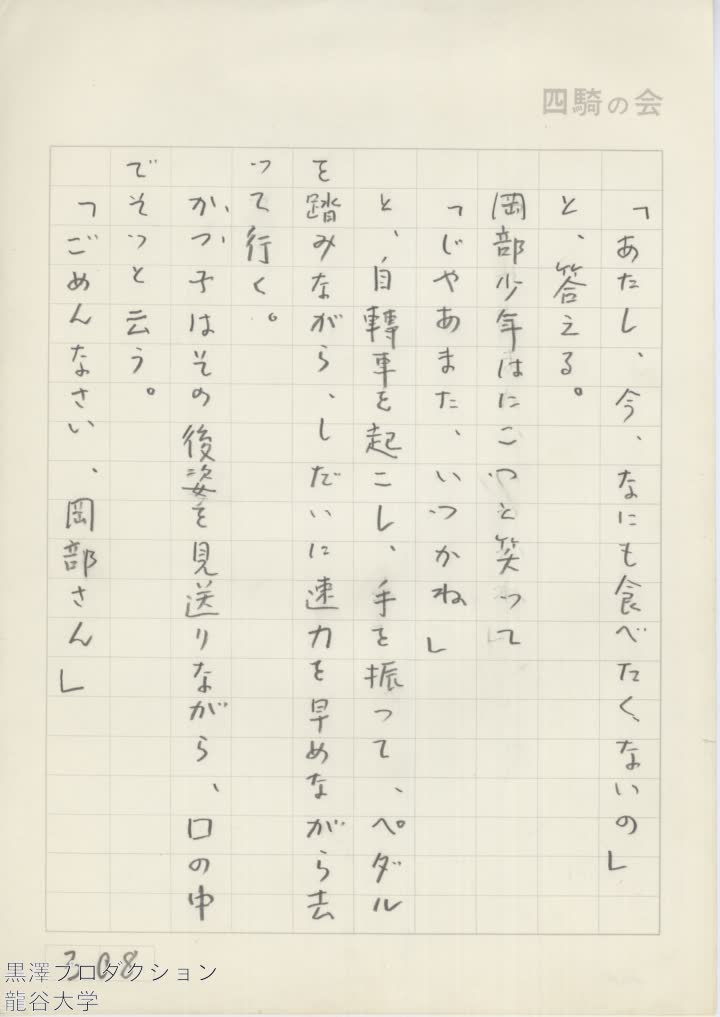 四騎の会
「あたし、今、なにも食べたくないの」
と、答える。
岡部少年はにこつと笑って
「じゃあまた、いつかね」
と、自轉車を起こし、手を振って、ペダル
を踏みながら、しだいに速力を早めながら去
って行く。
かつ子はその後姿を見送りながら、口の中
でそっと云う。
「ごめんなさい、岡部さん」
308
黒澤プロダクション
龍谷大学